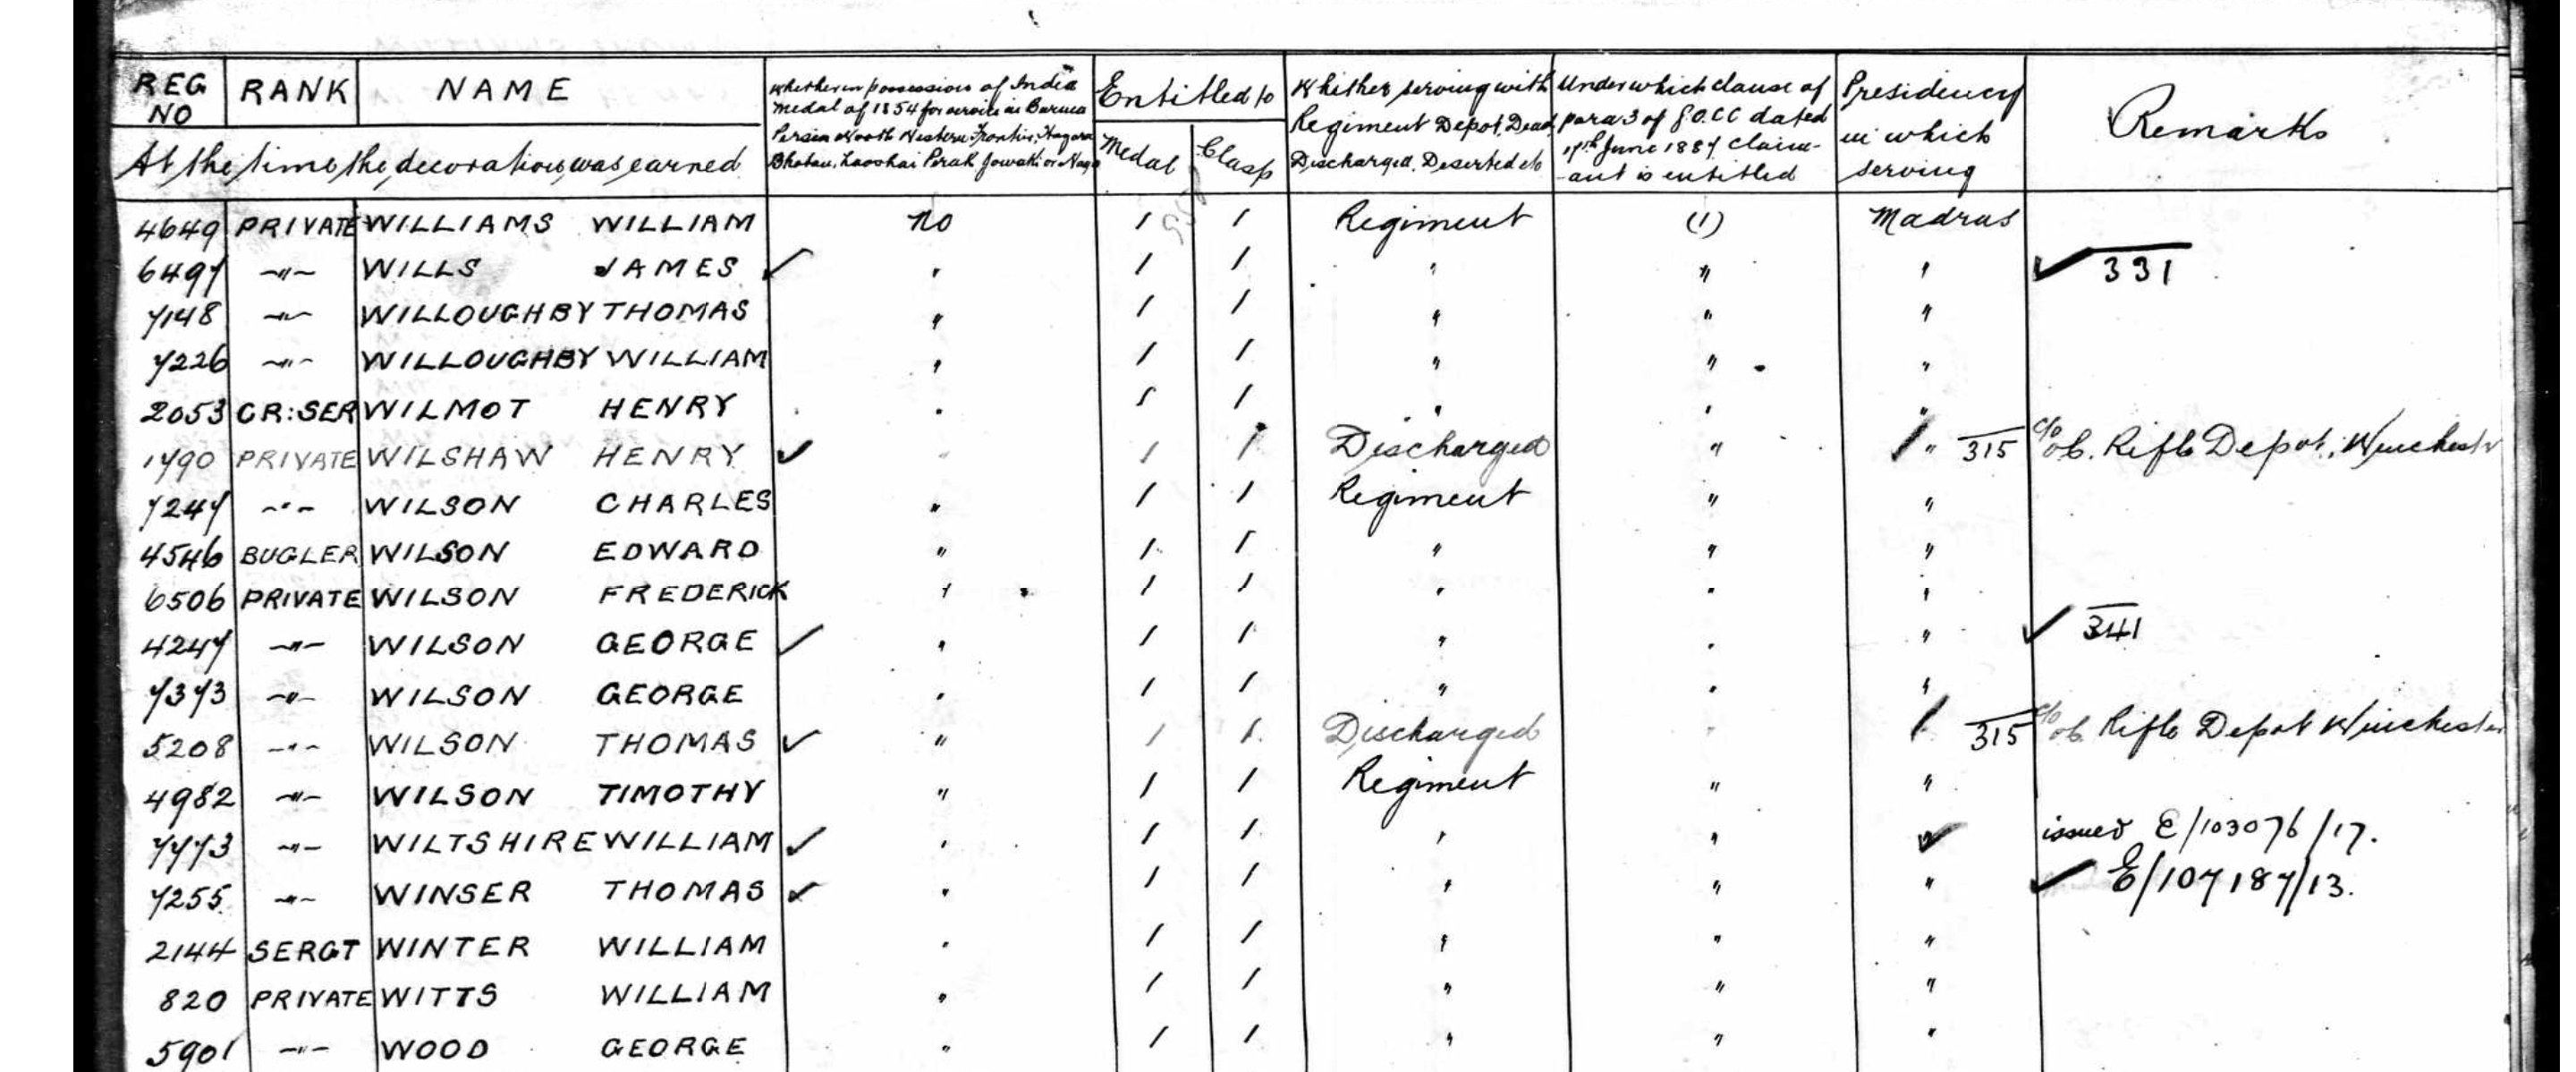 REG NO RANK NAME whether in possession of India Medal of 1854 for service in Burma Persia North Western Frontier, Hazara Bhotan, Looshai Perak Jowaki or Naga Entitled to Medal Clasp Whether serving with Regiment Depot, Dead, Discharged, Deserted etc Under which clause of para 3 of G.O.CC dated June 1887 claimant is entitled Presidency in which serving Remarks
At the time the decoration was earned
4649 PRIVATE WILLIAMS WILLIAM no 1 1 Regiment (1) Madras
6497 —"— WILLS JAMES ✓ " 1 1 " " " ✓ 331
7148 —"— WILLOUGHBY THOMAS " 1 1 " " "
7226 —"— WILLOUGHBY WILLIAM " 1 1 " " "
2053 CR:SER WILMOT HENRY " 1 1 " " "
1790 PRIVATE WILSHAW HENRY ✓ " 1 1 Discharged " " 315 c/o Rifle Depot, Winchester
7247 —"— WILSON CHARLES " 1 1 Regiment " "
4546 BUGLER WILSON EDWARD " 1 1 " " "
6506 PRIVATE WILSON FREDERICK " 1 1 " " "
4247 —"— WILSON GEORGE ✓ " 1 1 " " " ✓ 341
7373 —"— WILSON GEORGE " 1 1 " " "
5208 —"— WILSON THOMAS ✓ " 1 1 Discharged " 315 c/o Rifle Depot Winchester
4982 —"— WILSON TIMOTHY " 1 1 Regiment " "
7773 —"— WILTSHIRE WILLIAM ✓ " 1 1 " " ✓ issued E/103076/17.
7255 —"— WINSER THOMAS ✓ " 1 1 " " " ✓ E/107187/13.
2144 SERGT WINTER WILLIAM " 1 1 " " "
820 PRIVATE WITTS WILLIAM " 1 1 " " "
5901 —"— WOOD GEORGE " 1 1 " " "